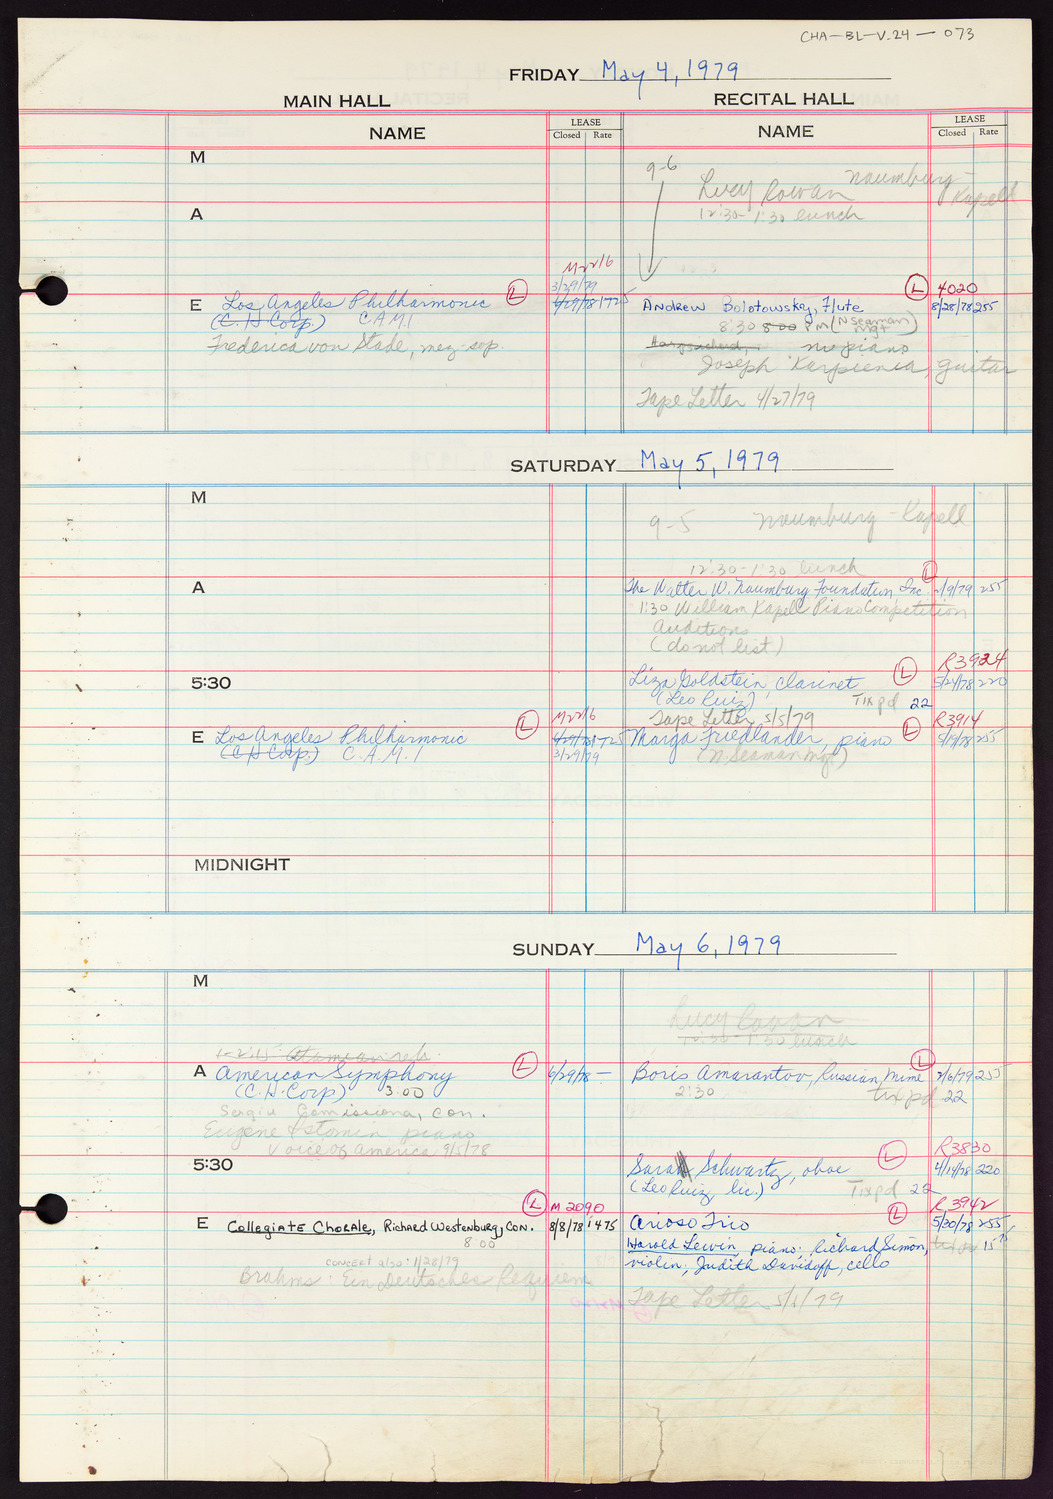 CHA-BL-V.24-073
FRIDAY May 4, 1979
MAIN HALL RECITAL HALL
NAME LEASE Closed Rate NAME LEASE Closed Rate
M
9-6 Lucy Rowan Naumburg-Kapell
12:30-1:30 lunch
A
M2216
3/29/79
E Los Angeles Philharmonic L 6/29/78 1725
(C.H Corp.) C.A.M.I
Frederica von Stade, mez-sop
L 4020
Andrew Bolotowsky, Flute 8/28/78 255
8:30 8:00 PM (N Seaman Mgt)
Harpsichord, no piano
Joseph Karpienia, guitar
Tape Letter 4/27/79
SATURDAY May 5, 1979
M
9-5 Naumburg-Kapell
12:30-1:30 lunch
A The Walter W. Naumburg Foundation Inc. L /9/79 255
1:30 William Kapell Piano Competition
Auditions
(do not list)
5:30 Liza Goldstein, clarinet L R3924 5/24/78 220
(Leo Ruiz) Tix pd 22
Tape Letter 5/5/79
E Los Angeles Philharmonic L M2216 6/29/78 1725
(C H Corp.) C.A.M.I 3/29/79
Marga Friedlander, piano L R3914 5/19/78 255
(N. Seaman Mgt)
MIDNIGHT
SUNDAY May 6, 1979
M
Lucy Rowan
12:30-1:30 lunch
A American Symphony L 6/29/78 —
(C.H. Corp) 3:00
Sergiu Comissiona, con.
Eugene Istomin piano
Voice of America 9/5/78
Boris Amarantov, Russian Mime L 2/6/79 255
2:30 tix pd 22
5:30 Sarah Schwartz, oboe L R3830 4/14/78 220
(Leo Ruiz, lic.) Tix pd 22
E Collegiate Chorale, Richard Westenburg, con. L M 2090 8/8/78 1475
8:00
concert also: 1/28/79
Brahms: Ein Deutsches Requiem
Arioso Trio L R 3942 5/30/78 255
Harold Lewin, piano; Richard Simon, 15
violin; Judith Davidoff, cello
Tape Letter 5/ /79